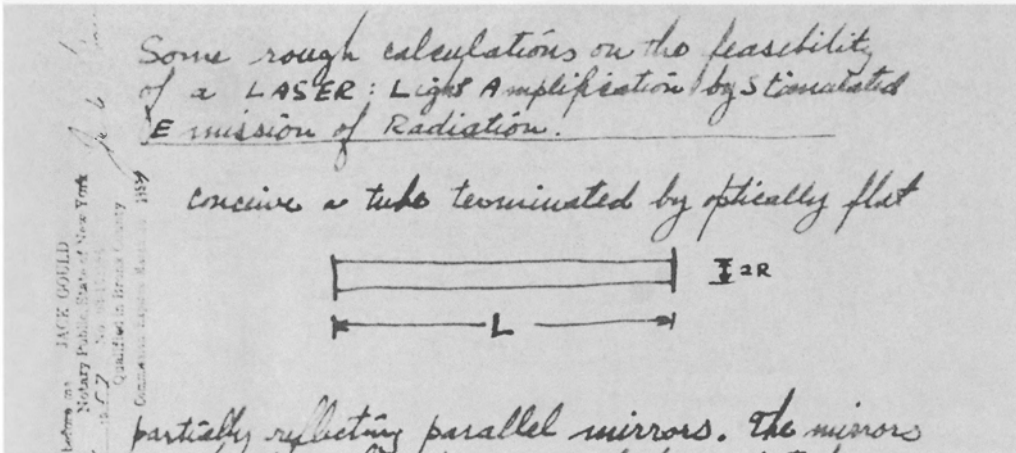 Some rough calculations on the feasibility
of a LASER: Light Amplification by Stimulated
Emission of Radiation.
conceive a tube terminated by optically flat
2R
L
partially reflecting parallel mirrors. The mirrors
JACK GOULD
Notary Public, State of New York
Qualified in Bronx County
Commission Expires 1959